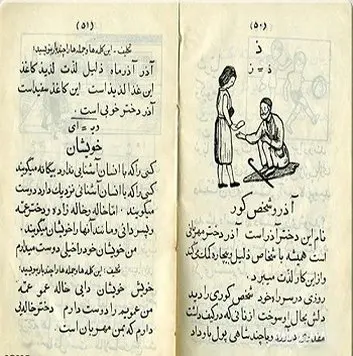 (۵۰)
ذ
ذ = ز
آذر و شخص کور
نام این دختر آذر است آذر دختر مهربانی
است همیشه با شخاص ذلیل و بیچاره کمک میکند
و از این کار لذت میبرد.
روزی در سر راه خود شخص کوری را دید
دلش بحال او سوخت از نانی که در کیف داشت
مقداری در آورد و با چند شاهی پول باو داد
(۵۱)
تکلیف - این کلمه ها و جمله ها را چند بار بنویسید:
آذر آذرماه ذلیل لذت لذیذ کاغذ
این غذا لذیذ است این کاغذ سفید است
آذر دختر خوبی است.
= ای
خویشان
کسی را که با انسان آشنائی ندارد بیگانه میگویند
کسی را که با انسان آشنائی نزدیک دارد دوست
میگویند. اما خاله و خاله زاده و دختر عمه
و پسر دائی و مانند آنها را خویشان میگویند.
من خویشان خود را خیلی دوست میدارم
تکلیف: این کلمه ها و جمله ها را چند بار بنویسید:
خویش خویشان دایی خاله عمو عمه
من عمویم را دوست دارم دختر خاله‌ایی
دارم که بمن مهربان است.